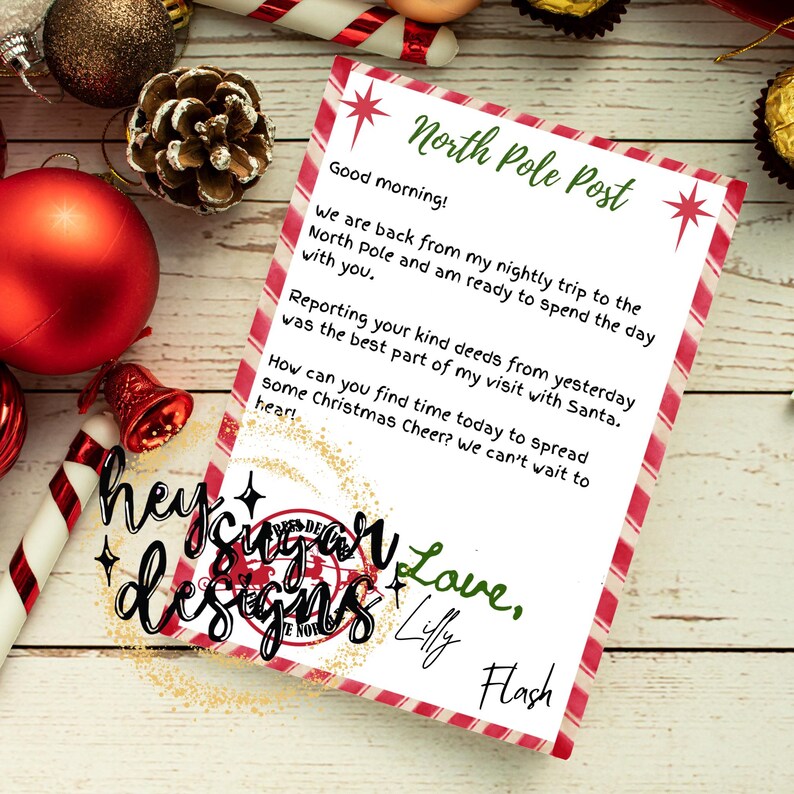 North Pole Post
Good morning!
We are back from my nightly trip to the
North Pole and am ready to spend the day
with you.
Reporting your kind deeds from yesterday
was the best part of my visit with Santa.
How can you find time today to spread
some Christmas Cheer? We can't wait to
hear!
hey
sugar
designs
Love,
Lilly
Flash